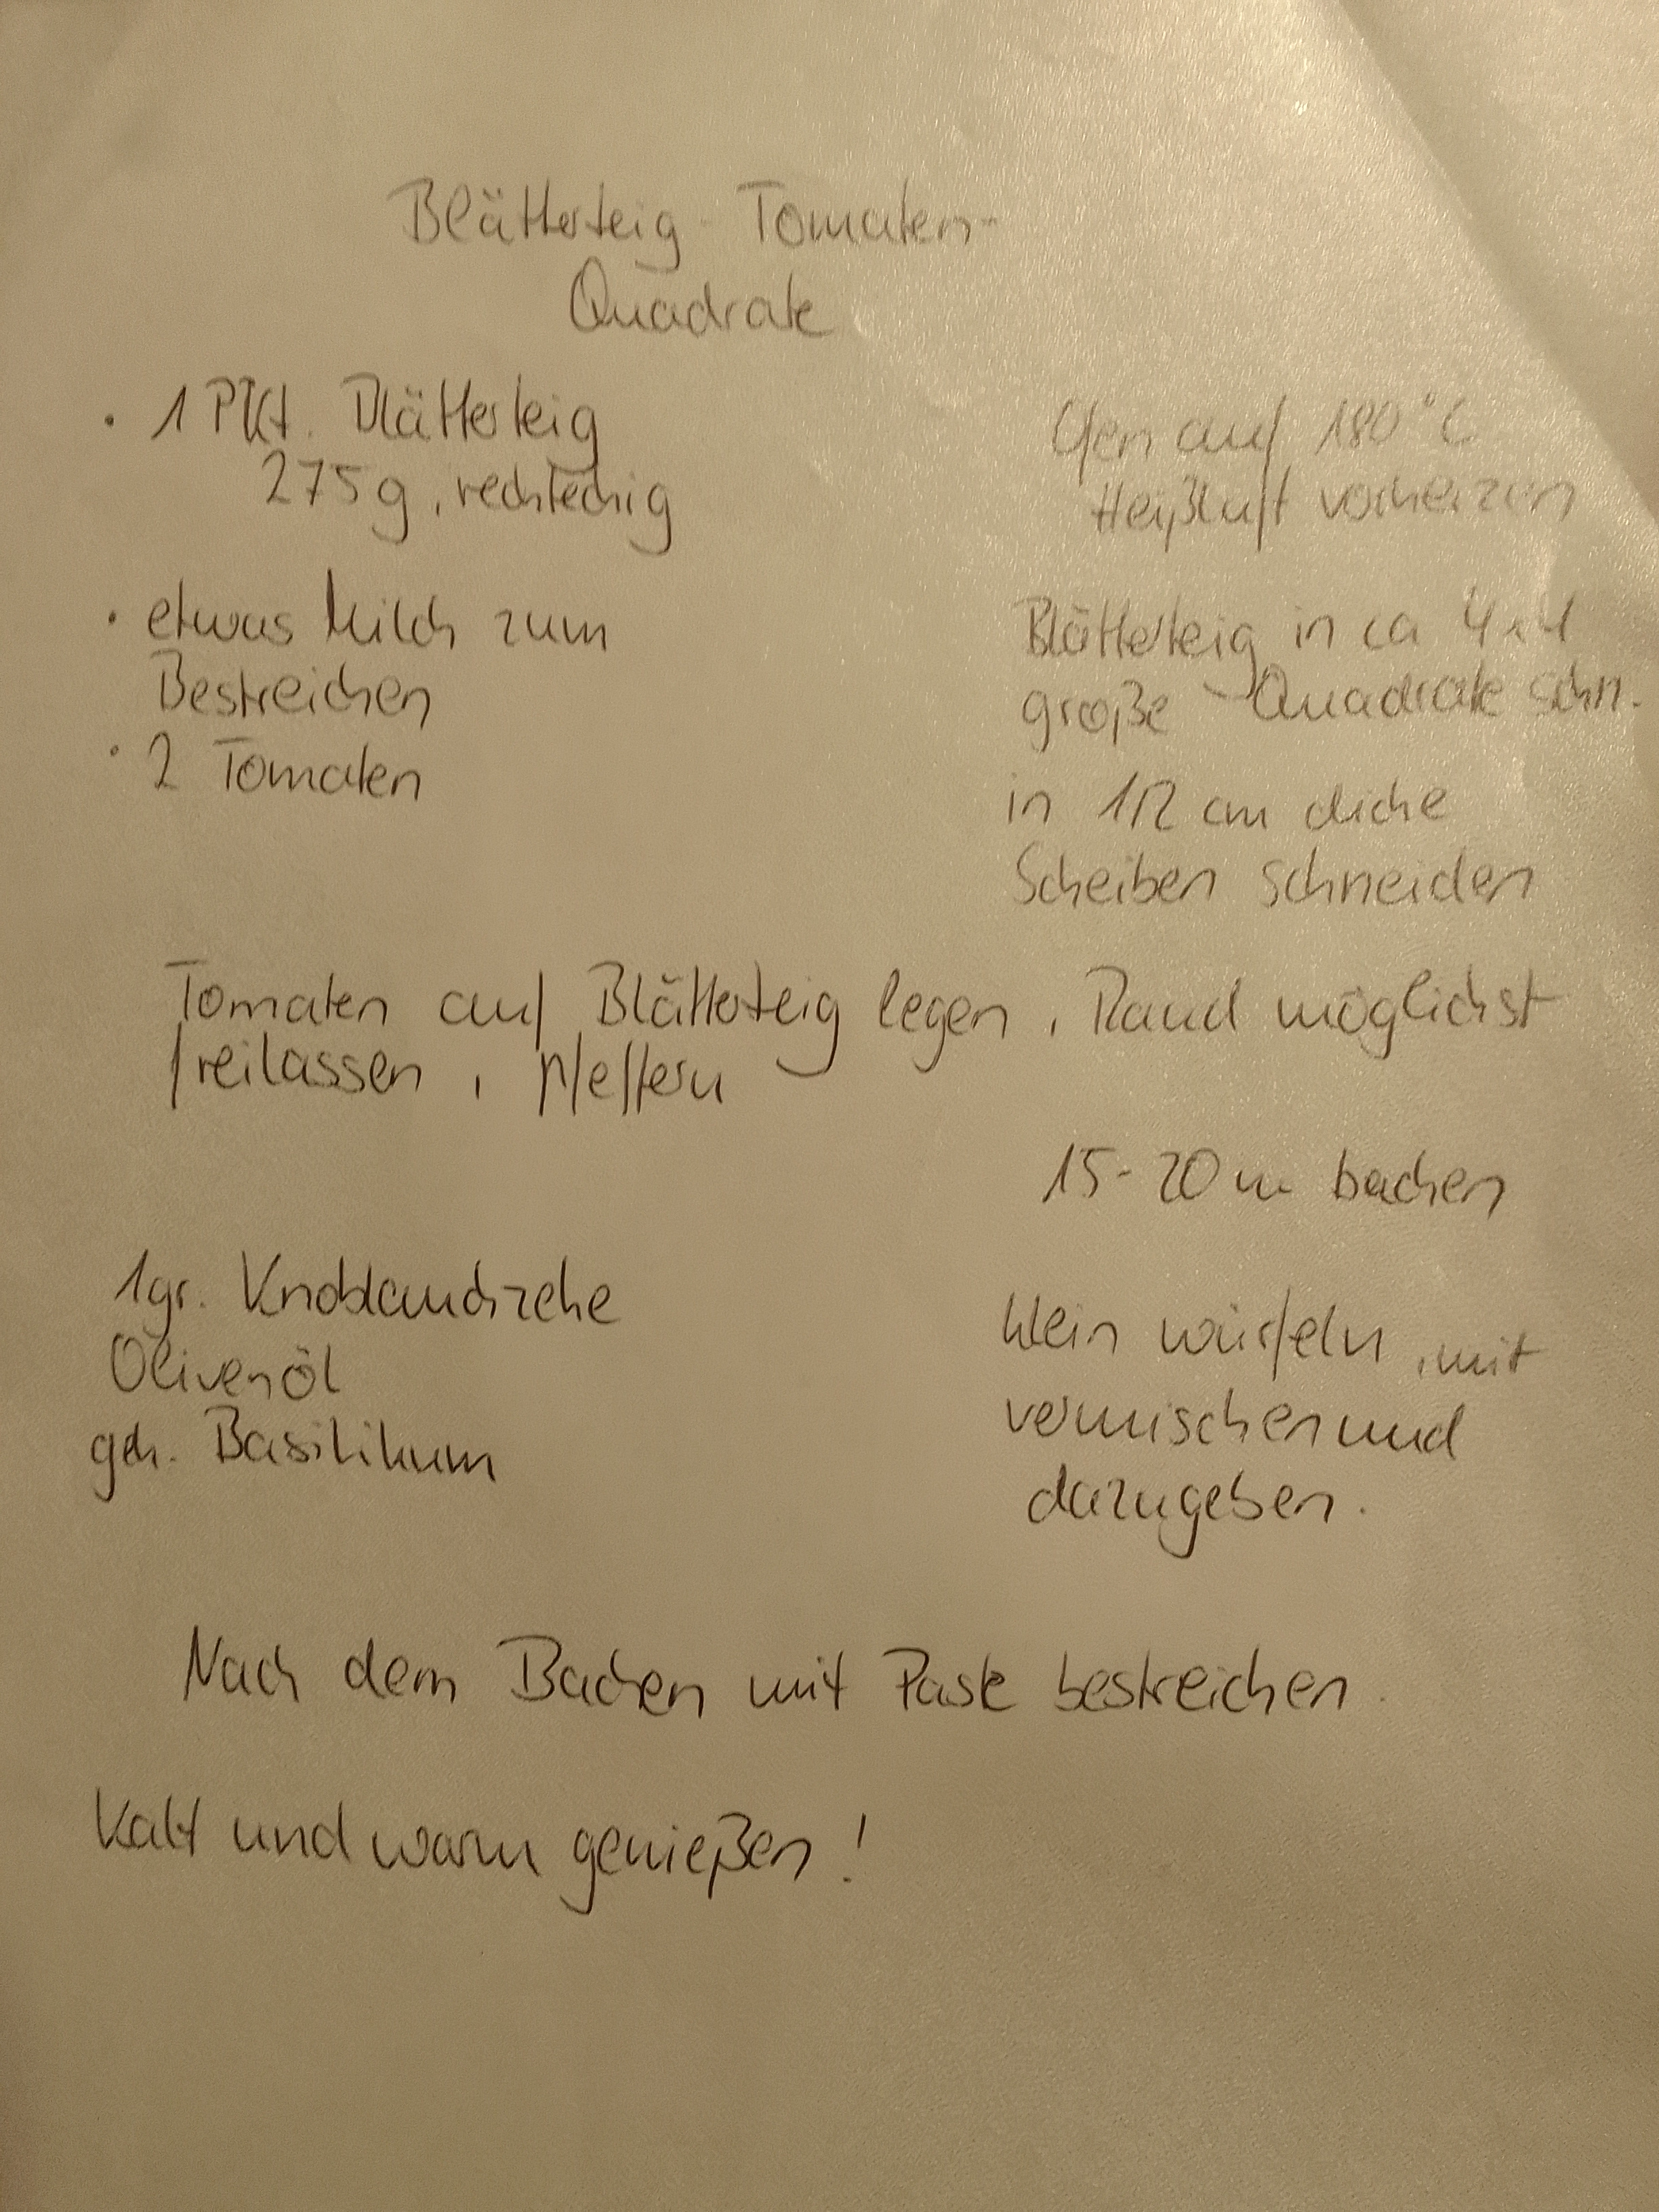 Blätterteig-Tomaten-
Quadrate
· 1 Pkt. Blätterteig
275g, rechteckig
Ofen auf 180°C
Heißluft vorheizen
· etwas Milch zum
Bestreichen
Blätterteig in ca 4x4
große Quadrate schn.
· 2 Tomaten
in 1/2 cm dicke
Scheiben schneiden
Tomaten auf Blätterteig legen, Rand möglichst
freilassen, pfeffern
15-20 m backen
1 gr. Knoblauchzehe
Olivenöl
geh. Basilikum
klein würfeln, mit
vermischen und
dazugeben.
Nach dem Backen mit Paste bestreichen.
Kalt und warm genießen!